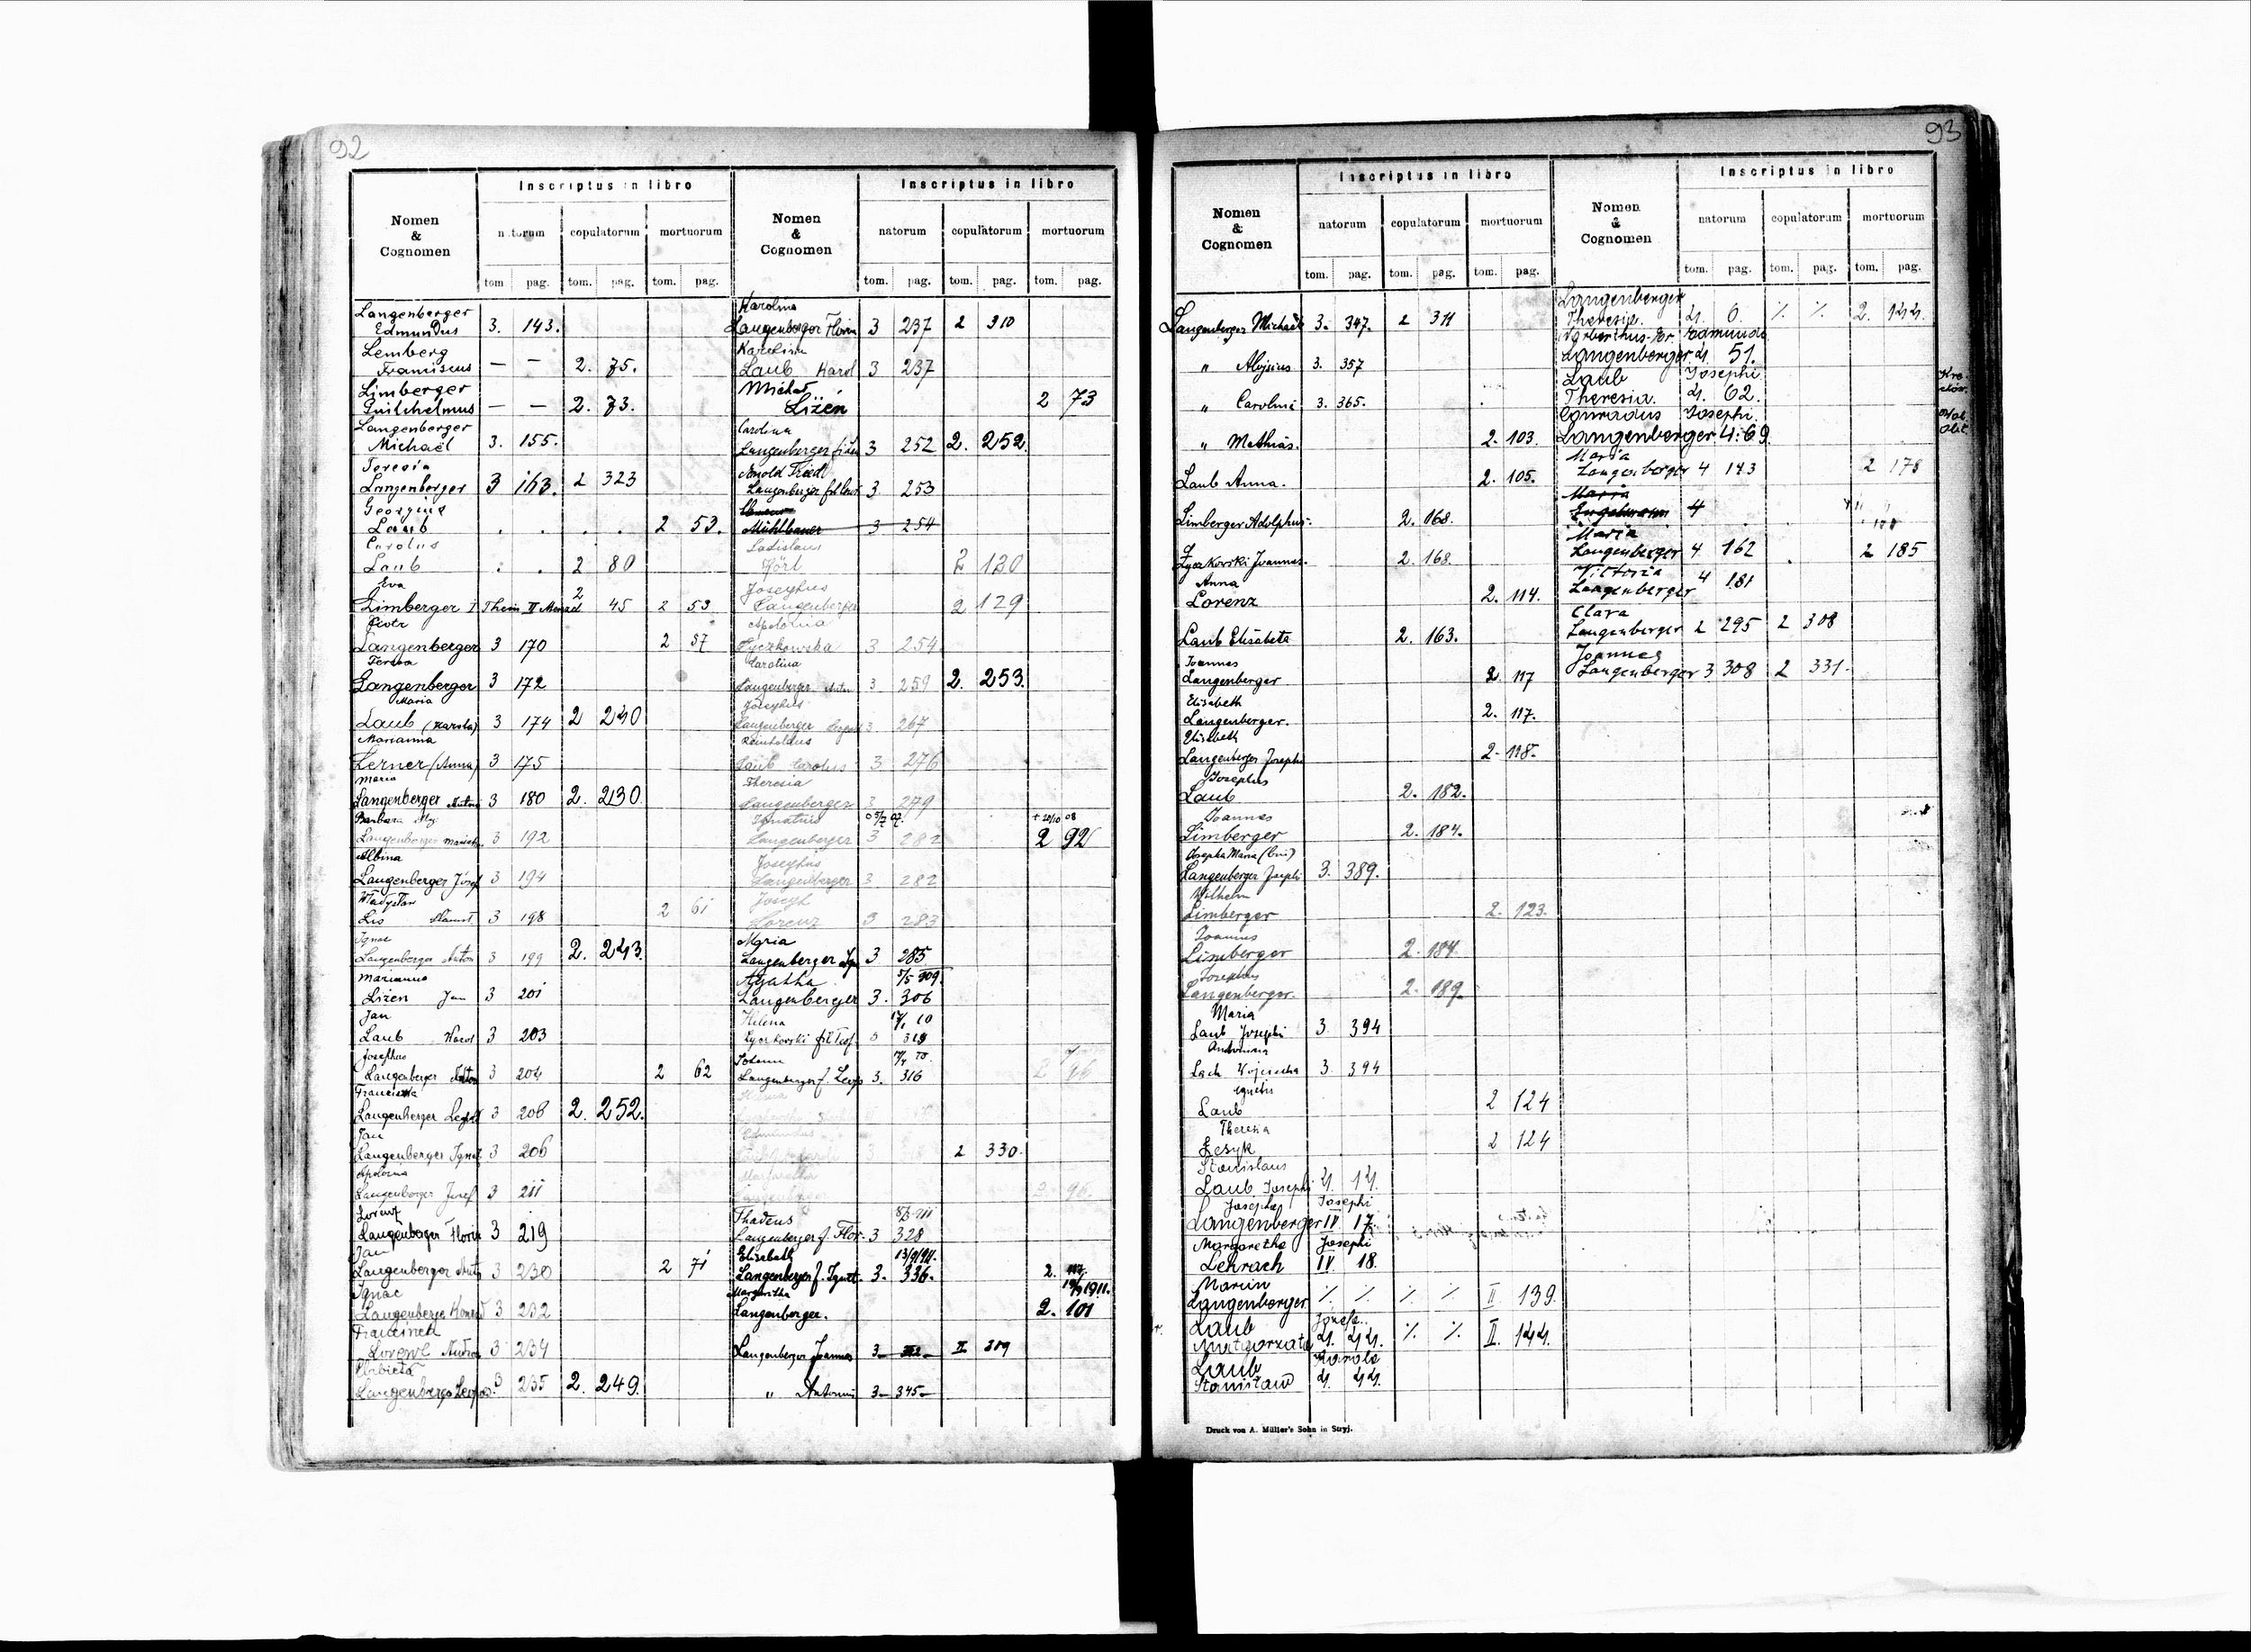 92
Nomen & Cognomen
Inscriptus in libro
natorum copulatorum mortuorum
tom. pag. tom. pag. tom. pag.
Langenberger
Edmundus 3. 143.
Lemberg
Franciscus — — 2. 75.
Limberger
Guilhelmus — — 2. 73.
Langenberger
Michaël 3. 155.
Teresia
Langenberger 3 163. 2 323
Georgius
Laub . . . . 2 53.
Carolus
Laub . . 2 80
Eva
Limberger 2 45 2 53
Piotr
Langenberger 3 170 2 57
Teresa
Langenberger 3 172
Maria
Laub (Karola) 3 174 2 240
Marianna
Lerner (Anna) 3 175
Maria
Langenberger Anton 3 180 2. 230.
Barbara
Langenberger 3 192
Albina
Langenberger Józef 3 194
Władysław
Lis 3 198 2 61
Ignac
Langenberger Anton 3 199 2. 243.
Marianna
Lizen Jan 3 201
Jan
Laub Karol 3 203
Josephus
Langenberger Anton 3 204 2 62
Franciska
Langenberger 3 206 2. 252.
Jan
Langenberger Ignac 3 206
Apolonia
Langenberger Josef 3 211
Lorenz
Langenberger Florin 3 219
Jan
Langenberger 3 230 2 71
Ignac
Langenberger Konrad 3 232
3 234
Elżbieta
Langenberger Leopold 3 235 2. 249.
Nomen & Cognomen
Inscriptus in libro
natorum copulatorum mortuorum
tom. pag. tom. pag. tom. pag.
Karolina
Langenberger Florin 3 237 2 310
Karolina
Laub Karol 3 237
Michał
Liżen 2 73
Carolina
Langenberger 3 252 2. 252.
Arnold
Langenberger 3 253
Mühlbauer 3 254
Ladislaus
2 130
Josephus
Langenberger 2 129
Apolonia
Łyczkowska 3 254
Carolina
Langenberger Anton 3 259 2. 253.
Josephus
Langenberger Leopold 3 267
Reinholdus
Laub Carolus 3 276
Theresia
Langenberger 3 279
Ignatius
Langenberger 3 282 2 92
Josephus
Langenberger 3 282
Joseph
Lorenz 3 283
Maria
Langenberger 3 285
Agatha 5/5 909.
Langenberger 3. 306
Helena
Łyczkowski
Johann
Langenberger f. Leop 3. 316
Edmundus
2 330.
Margaretha
Langenberger 2 96.
Thadeus
Langenberger f. Flor. 3 328
Elisabeth 13/9/911.
Langenberger f. Ignat. 3. 336. 2.
Margaritha
Langenberger. 2. 101
Langenberger Joannes 3 II 309
" Antonius 3— 345—
93
Nomen & Cognomen
Inscriptus in libro
natorum copulatorum mortuorum
tom. pag. tom. pag. tom. pag.
Langenberger Michaël 3. 347. 2 311
" Alojsius 3. 357
" Carolina 3. 365.
" Mathias. 2. 103.
Laub Anna. 2. 105.
Limberger Adolphus. 2. 168.
Łyczkowski Joannes. 2. 168.
Anna
Lorenz 2. 114.
Laub Elisabeta 2. 163.
Joannes
Langenberger 2. 117
Elisabeth
Langenberger. 2. 117.
Elisabeth
Langenberger Josephi 2. 118.
Josephus
Laub 2. 182.
Joannes
Limberger 2. 184.
Josepha Maria (bini)
Langenberger Josephi 3. 389.
Wilhelm
Limberger 2. 123.
Joannes
Limberger 2. 184.
Josephus
Langenberger. 2. 189.
Maria
Laub Josephi 3 394
Antonina
Lach Wojciecha 3 394
Laub 2 124
Theresa
Łesyk 2 124
Stanislaus
Laub Josephi 4. 14.
Josepha Josephi
Langenberger IV 17.
Margaretha Josephi
Lehrach IV. 18.
Marcin
Langenberger % % % % II 139.
Laub Józefa
Małgorzata 4. 44. % % II. 144.
Laub Karola
Stanisław 4. 44.
Druck von A. Müller's Sohn in Stryj.
Nomen & Cognomen
Inscriptus in libro
natorum copulatorum mortuorum
tom. pag. tom. pag. tom. pag.
Langenberger
Theresia 4. 6. % % 2. 144.
Edmunda
Langenberger 4. 51.
Laub Josephi
Theresia. 4. 62.
Conradus Josephi
Langenberger 4. 69.
Maria
Langenberger 4 143 2 178
Maria
Engelmann 4
Maria
Langenberger 4 162 2 185
Victoria
Langenberger 4 181
Clara
Langenberger 2 295 2 308
Joannes
Langenberger 3 308 2 331.